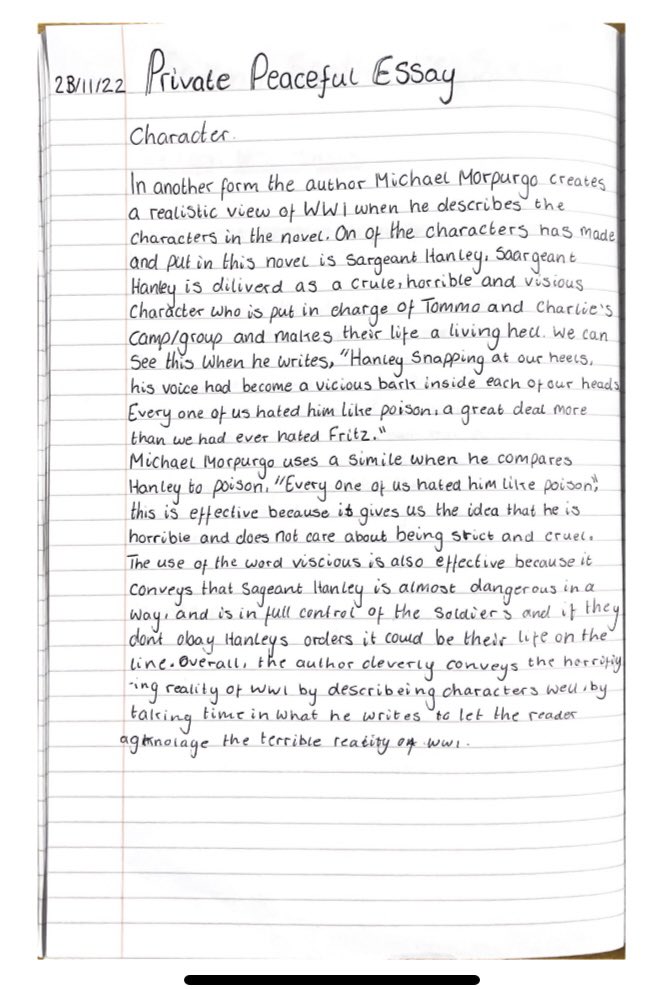 28/11/22 Private Peaceful Essay
Character.
In another form the author Michael Morpurgo creates
a realistic view of WW1 when he describes the
characters in the novel. On of the characters has made
and put in this novel is Sargeant Hanley. Saargeant
Hanley is diliverd as a crule, horrible and visious
Character who is put in charge of Tommo and Charlie's
camp/group and makes their life a living hell. We can
see this when he writes, "Hanley Snapping at our heels,
his voice had become a vicious bark inside each of our heads
Every one of us hated him like poison, a great deal more
than we had ever hated Fritz."
Michael Morpurgo uses a simile when he compares
Hanley to poison, "Every one of us hated him like poison",
this is effective because it gives us the idea that he is
horrible and does not care about being strict and cruel.
The use of the word viscious is also effective because it
conveys that Sageant Hanley is almost dangerous in a
way, and is in full control of the Soldiers and if they
dont obay Hanleys orders it could be their life on the
line. Overall, the author cleverly conveys the horrifiy
-ing reality of WW1 by describeing characters well, by
taking time in what he writes to let the reader
agknolage the terrible reality of WW1.